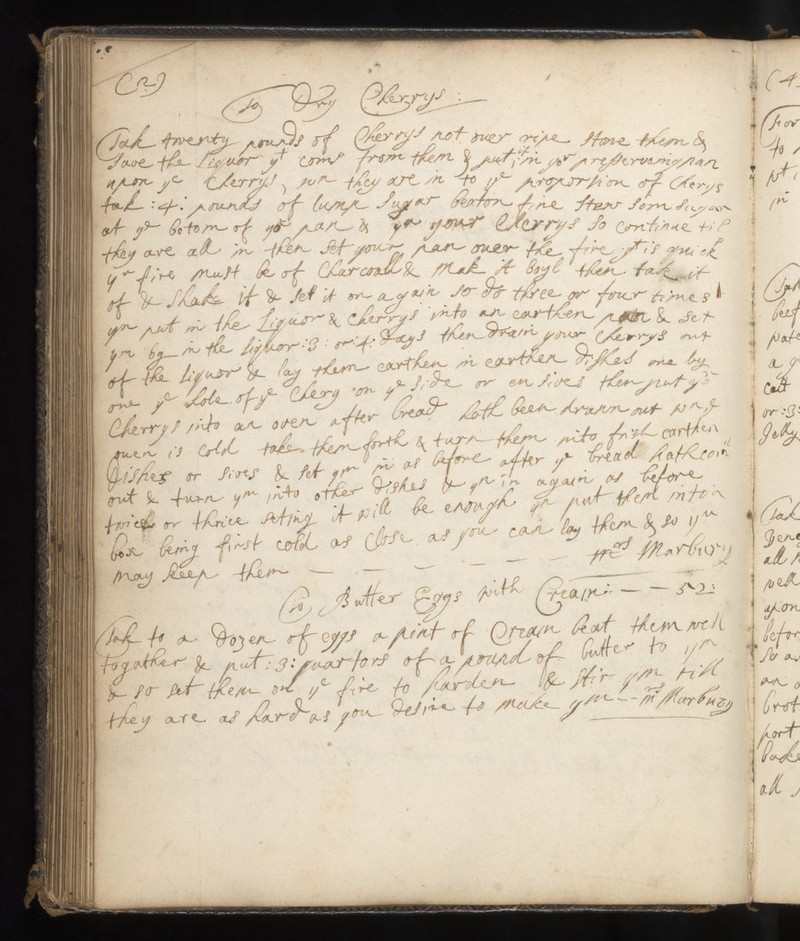 (2)
To Dry Cherrys :
Tak twenty pounds of Cherrys not over ripe stone them &
save the Liquor yt coms from them & put it in yor preserveing pan
upon ye Cherrys, wn they are in to ye proportion of Cherys
tak :4: pounds of lump sugar beaton fine strew som sugar
at ye botom of yor pan & yn your Cherrys so continue till
they are all in then set your pan over the fire yt is quick
yr fire must be of Charcoall & mak it boyl then tak it
of & shake it & set it on again so do three or four times
yn put in the Liquor & Cherrys into an earthen pan & let
ym by in the liquor :3: or :4: days then drain your Cherrys out
of the liquor & lay them in earthen dishes one by
one ye hole of ye Chery on ye side or on sives then put yor
Cherrys into an oven after bread hath been drawn out wn ye
oven is cold take them forth & turn them into fresh earthen
dishes or sives & set ym in as before after ye bread hath com
out & turn ym into other dishes & yn in again as before
twice or thrice seting it will be enough yn put them into a
box being first cold as close as you can lay them & so you
may keep them — — — — — — mrs Marbury
To Butter Eggs with Cream: — — 52:
Tak to a dozen of eggs a pint of Cream beat them well
togather & put :3: quartors of a pound of butter to ym
& so set them on ye fire to harden & stir ym till
they are as hard as you desire to make ym — mrs Marbury
(4
For
to
in
Tak
beef
wate
a
or :3:
Jelly
Tak
all
well
upon
befor
so as
an
brot
port
all